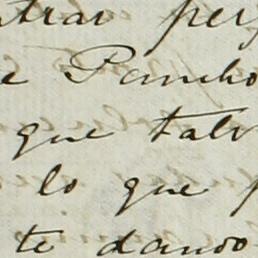 ntrar per
e Pancho
que tal
lo que
te dando